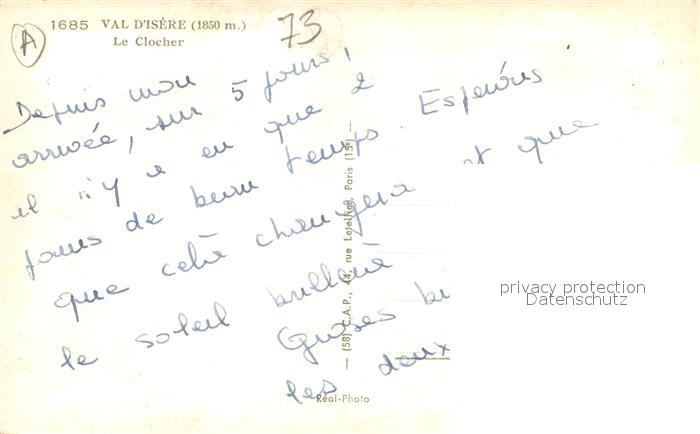 A
1685 VAL D'ISÈRE (1850 m.)
Le Clocher
73
Depuis mon
arrivée, sur 5 jours,
il n'y a eu que 2
jours de beau temps. Espérons
que cela changera et que
le soleil brillera
Grosses
les deux
(58) C.A.P., 44, rue Letellier, Paris (15e)
Réal-Photo
privacy protection
Datenschutz